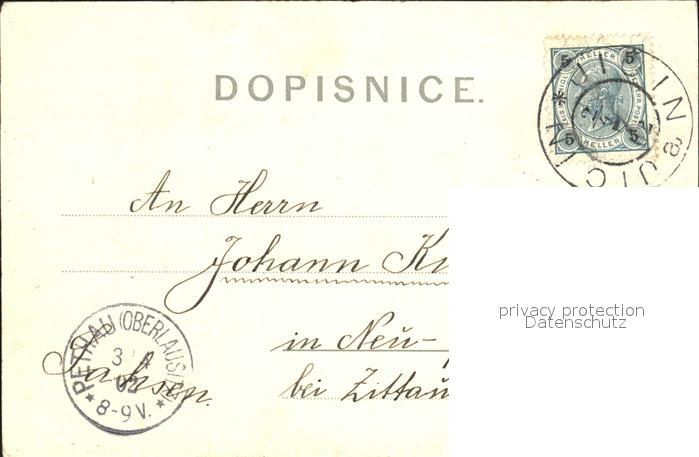 DOPISNICE.
5 5
HELLER
5 HELLER 5
An Herrn
Johann
in Neu-
bei Zittau
Sachsen.
PETHAU (OBERLAUSITZ)
8-9V.
privacy protection
Datenschutz